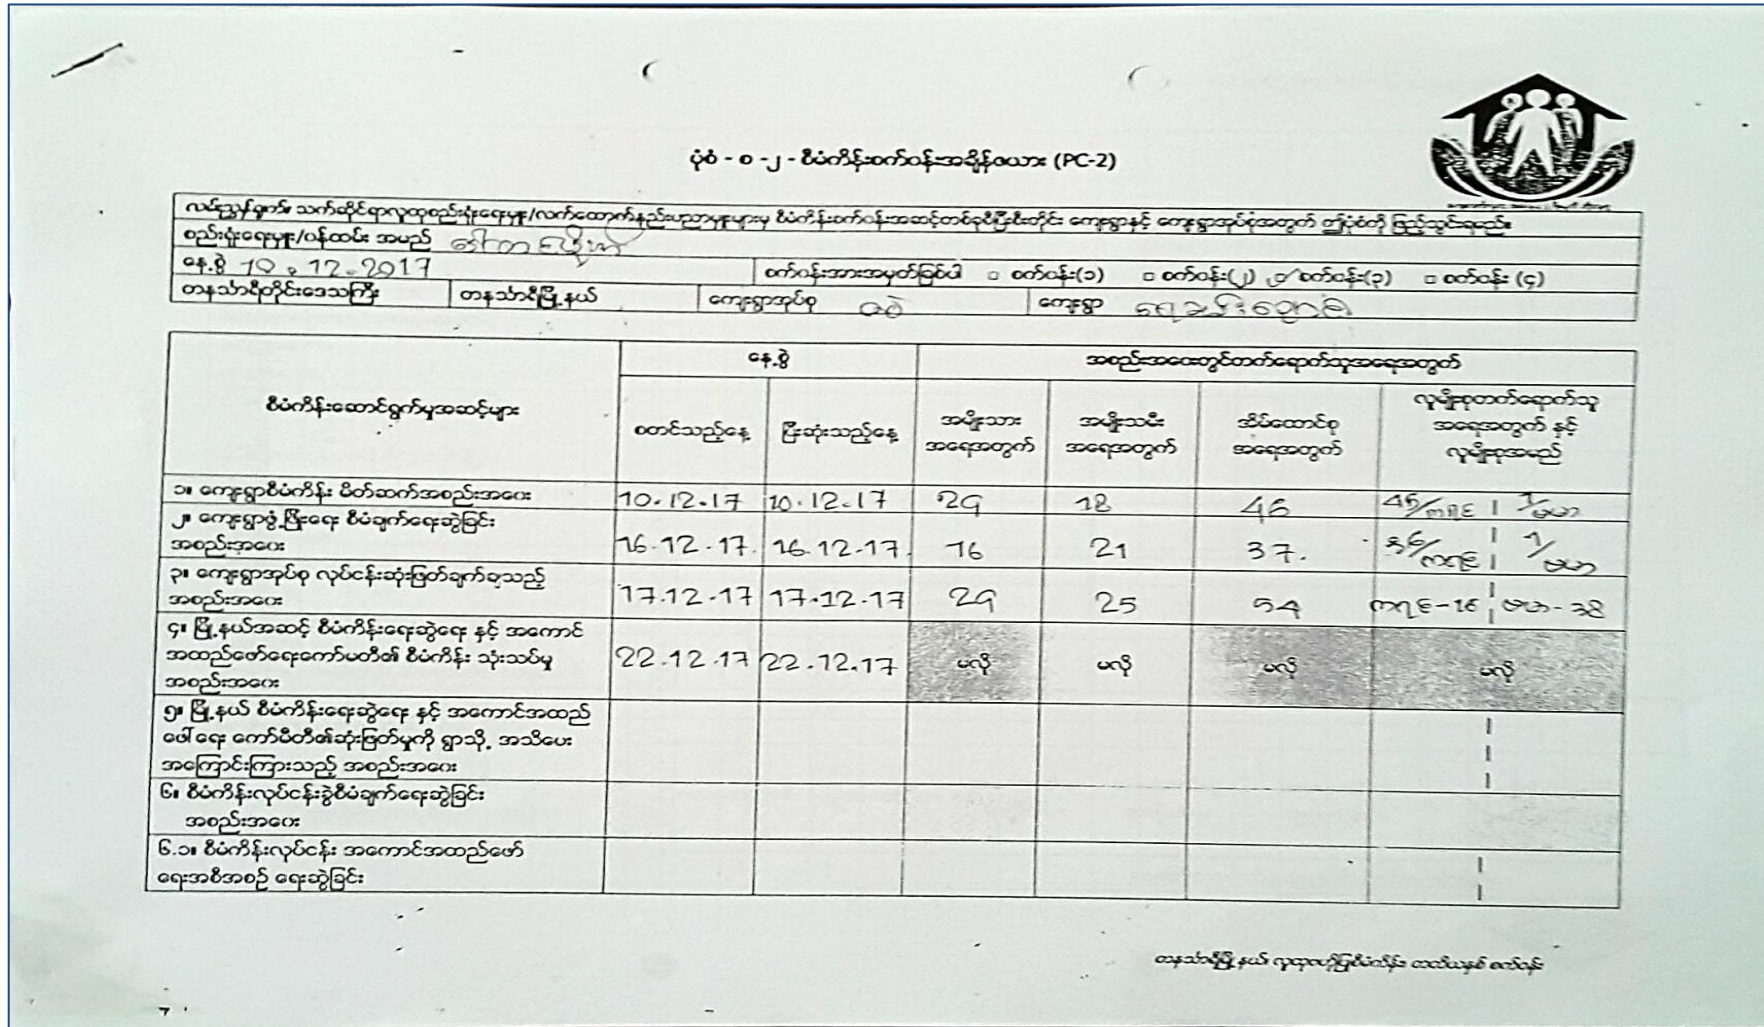 ပုံစံ - စ -၂ - စီမံကိန်းစက်ဝန်းအချိန်ဇယား (PC-2)
လမ်းညွှန်ချက်။ သက်ဆိုင်ရာလူထုစည်းရုံးရေးမှူး/လက်ထောက်နည်းပညာမှူးများမှ စီမံကိန်းစက်ဝန်းအဆင့်တစ်ခုစီပြီးစီးတိုင်း ကျေးရွာနှင့် ကျေးရွာအုပ်စုအတွက် ဤပုံစံကို ဖြည့်သွင်းရမည်။
စည်းရုံးရေးမှူး/ဝန်ထမ်း အမည်
နေ့စွဲ 10.12.2017 စက်ဝန်းအားအမှတ်ခြစ်ပါ □ စက်ဝန်း(၁) □ စက်ဝန်း(၂) ☑ စက်ဝန်း(၃) □ စက်ဝန်း (၄)
တနင်္သာရီတိုင်းဒေသကြီး တနင်္သာရီမြို့နယ် ကျေးရွာအုပ်စု ကျေးရွာ
စီမံကိန်းဆောင်ရွက်မှုအဆင့်များ နေ့စွဲ အစည်းအဝေးတွင်တက်ရောက်သူအရေအတွက်
စတင်သည့်နေ့ ပြီးဆုံးသည့်နေ့ အမျိုးသား အရေအတွက် အမျိုးသမီး အရေအတွက် အိမ်ထောင်စု အရေအတွက် လူမျိုးစုတက်ရောက်သူ အရေအတွက် နှင့် လူမျိုးစုအမည်
၁။ ကျေးရွာစီမံကိန်း မိတ်ဆက်အစည်းအဝေး 10.12.17 10.12.17 29 18 46 45/ကရင် 1/ဗမာ
၂။ ကျေးရွာဖွံ့ဖြိုးရေး စီမံချက်ရေးဆွဲခြင်း
အစည်းအဝေး 16.12.17. 16.12.17. 16 21 37. 36/ကရင် 1/ဗမာ
၃။ ကျေးရွာအုပ်စု လုပ်ငန်းဆုံးဖြတ်ချက်ချသည့်
အစည်းအဝေး 17.12.17 17.12.17 29 25 54 ကရင်-16 ဗမာ-38
၄။ မြို့နယ်အဆင့် စီမံကိန်းရေးဆွဲရေး နှင့် အကောင်
အထည်ဖော်ရေးကော်မတီ၏ စီမံကိန်း သုံးသပ်မှု
အစည်းအဝေး 22.12.17 22.12.17 မလို မလို မလို မလို
၅။ မြို့နယ် စီမံကိန်းရေးဆွဲရေး နှင့် အကောင်အထည်
ဖေါ်ရေး ကော်မီတီ၏ဆုံးဖြတ်မှုကို ရွာသို့ အသိပေး
အကြောင်းကြားသည့် အစည်းအဝေး
၆။ စီမံကိန်းလုပ်ငန်းခွဲစီမံချက်ရေးဆွဲခြင်း
အစည်းအဝေး
၆.၁။ စီမံကိန်းလုပ်ငန်း အကောင်အထည်ဖော်
ရေးအစီအစဉ် ရေးဆွဲခြင်း
တနင်္သာရီမြို့နယ်၊ လူထုဗဟိုပြုစီမံကိန်း၊ တတိယနှစ် စက်ဝန်း